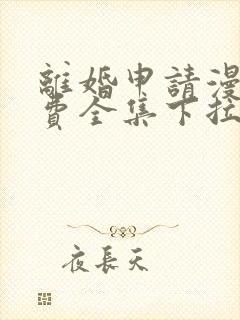 離婚申請漫
費全集下拉
夜長天